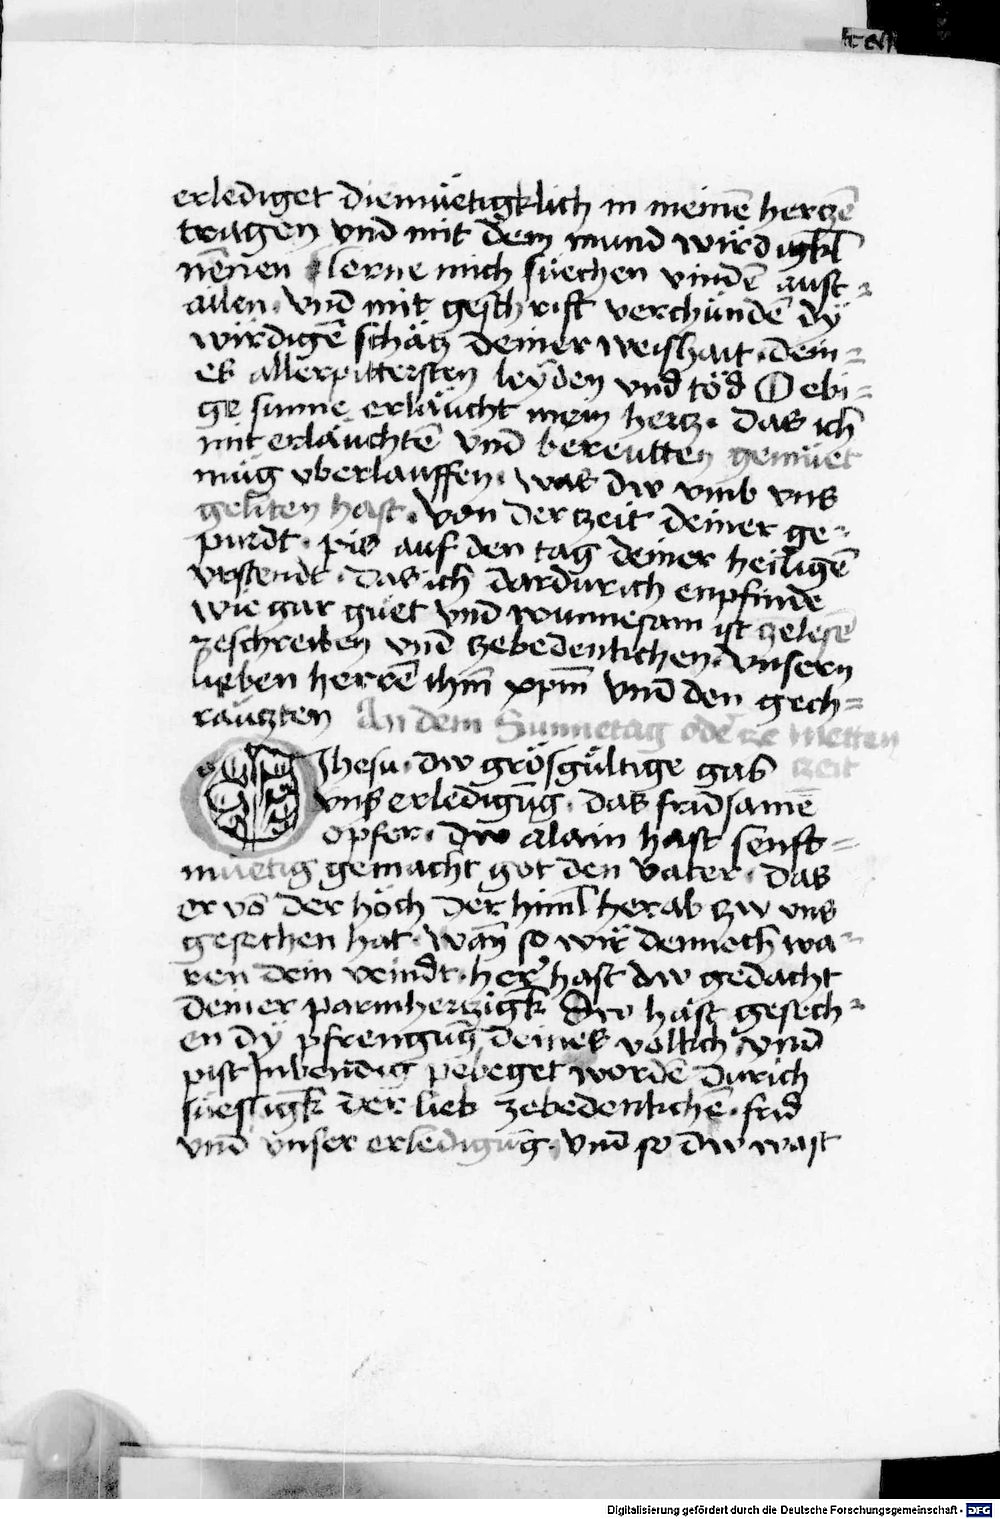 erlediget diemuetigklich in meinē hertzē
tragen vnd mit dem mund wirdigkl
nēnen lerne mich suechen vindē aust⸗
ailen. vnd mit geschrift verchündē dÿ
wirdigē schätz deiner weishait. dein⸗
es allerpittersten leÿden vnd töd O ebi⸗
ge sunne erläucht mein hertz. das ich
mit erläuchtē vnd bereutten gemüet
müg vberlauffen. was dw vmb vns
geliten hast. von der tzeit deiner ge⸗
purdt. pis auf den tag deiner heiligē
vrstendt. das ich dardurich enpfinde
wie gar guet vnd wunnesam ist tzelesē
zeschreiben vnd tzebedenkchen. vnsern
lieben herrē ihm̄ xpm̄ vnd den gech⸗
räutzten An dem Sunnetag oder ze metten
zeit
O Jhesu. dw grösgültige gab
vns erledigūg. das fridsamē
opfer. dw alain hast senft⸗
muetig gemacht got den vater. das
er vō der höch der himl herab tzw vns
gesechen hat. wan̄ so wir dennoch wa⸗
ren dein veindt. her hast dw gedacht
deiner parmhertzigk Dw hast gesech⸗
en dÿ pfrengūg deines volkch vnd
pist Inbendig pebeget wordē durich
suessigk der lieb zebedenkchē. frid
vnd vnser erledigūg. vnd so dw wast
Digitalisierung gefördert durch die Deutsche Forschungsgemeinschaft - DFG